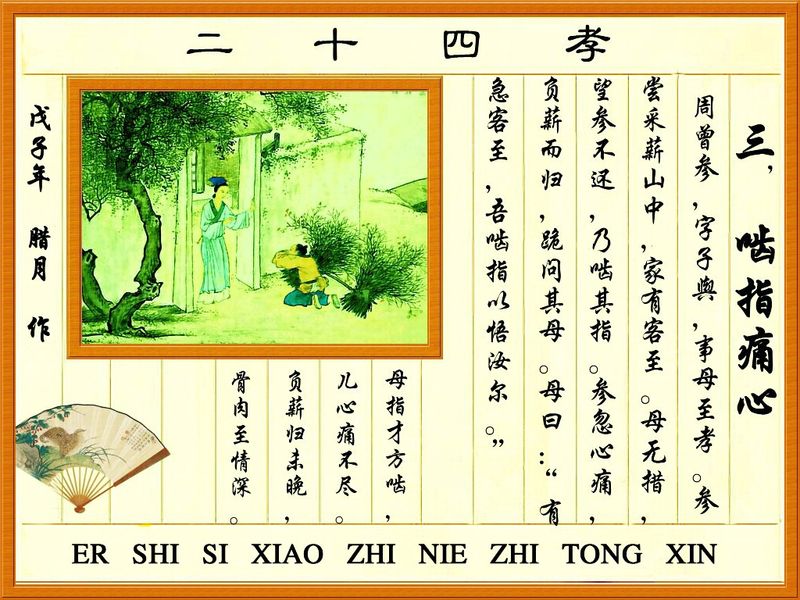 二十四孝
三，啮指痛心
周曾参，字子舆，事母至孝。参
尝采薪山中，家有客至。母无措，
望参不还，乃啮其指。参忽心痛，
负薪而归，跪问其母。母曰：“有
急客至，吾啮指以悟汝尔。”
母指才方啮，
儿心痛不尽。
负薪归未晚，
骨肉至情深。
戊子年 腊月 作
ER SHI SI XIAO ZHI NIE ZHI TONG XIN